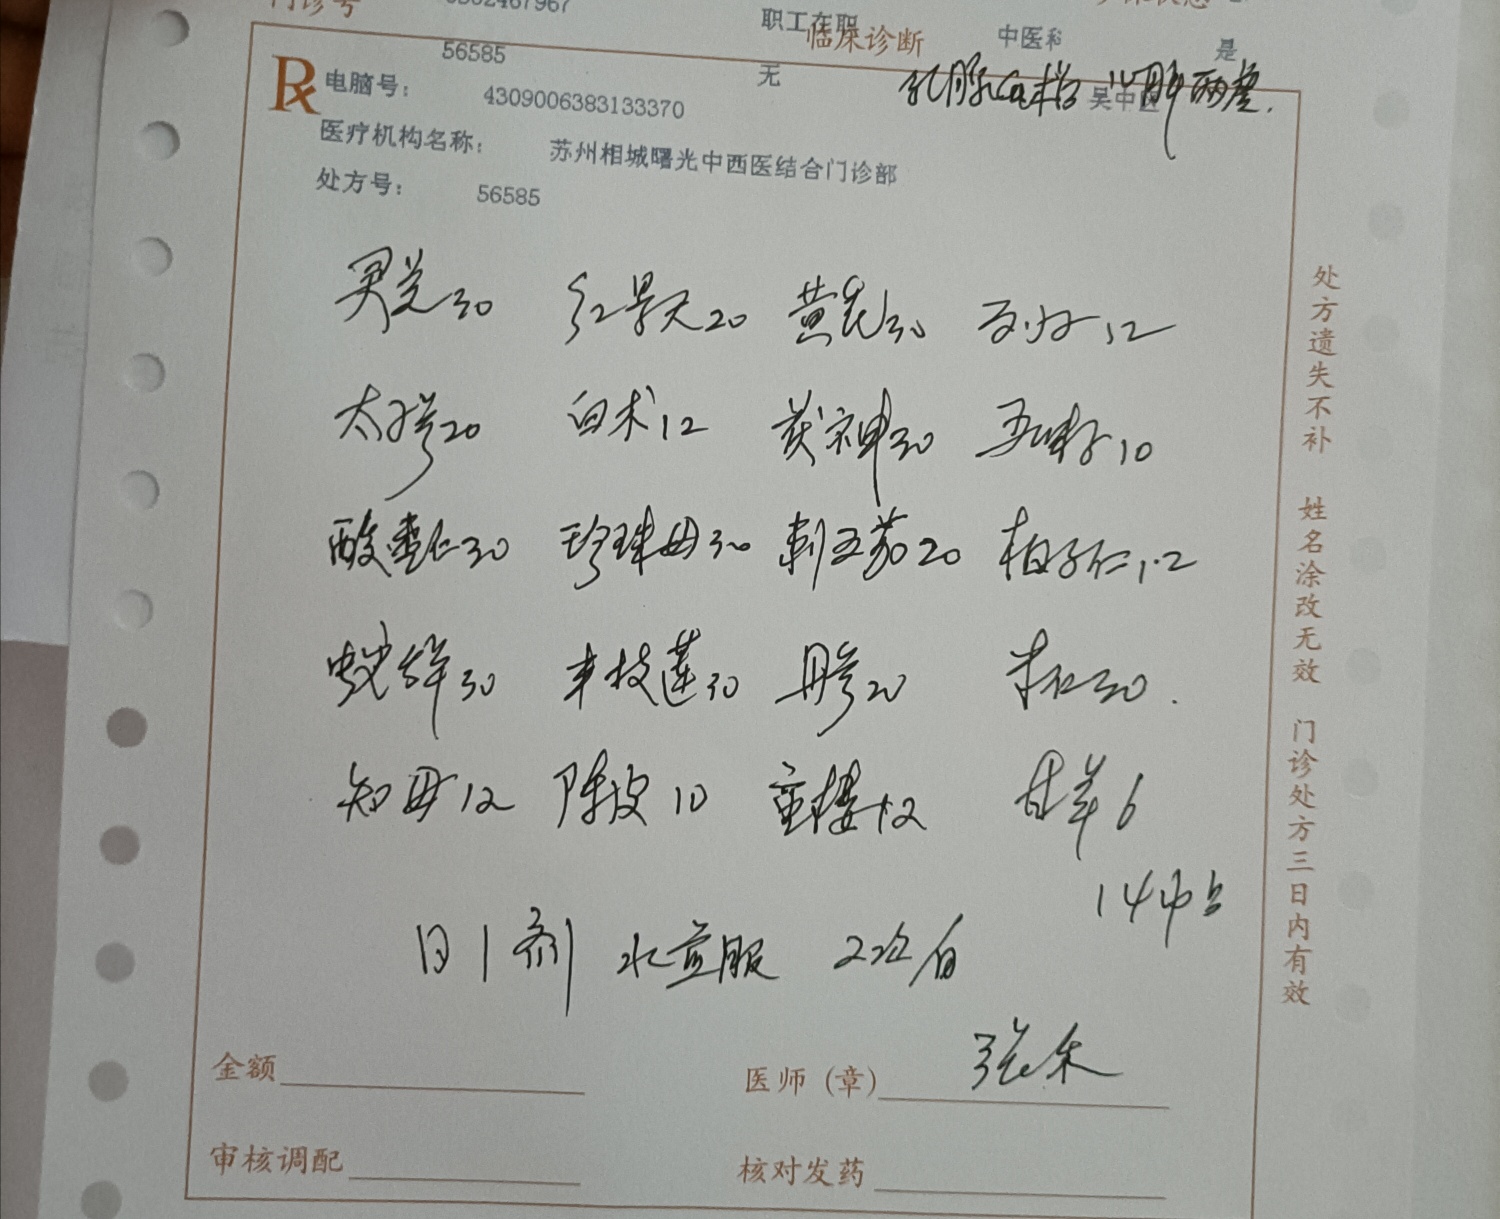 门诊号
职工在职
临床诊断
中医科
是
56585
无
电脑号：
4309006383133370
乳腺Ca术后 心脾两虚.
吴中区
医疗机构名称：
苏州相城曙光中西医结合门诊部
处方号：
56585
灵芝30 红景天20 黄芪30 12
太子参20 白术12 茯神30 五味子10
酸枣仁30 珍珠母30 刺五加20 柏子仁12
蛇舌草30 半枝莲30 丹参20 米仁30
知母12 陈皮10 重楼12 甘草6
14帖
日1剂 水煎服 2次/日
金额
医师（章）
审核调配
核对发药
处方遗失不补 姓名涂改无效 门诊处方三日内有效